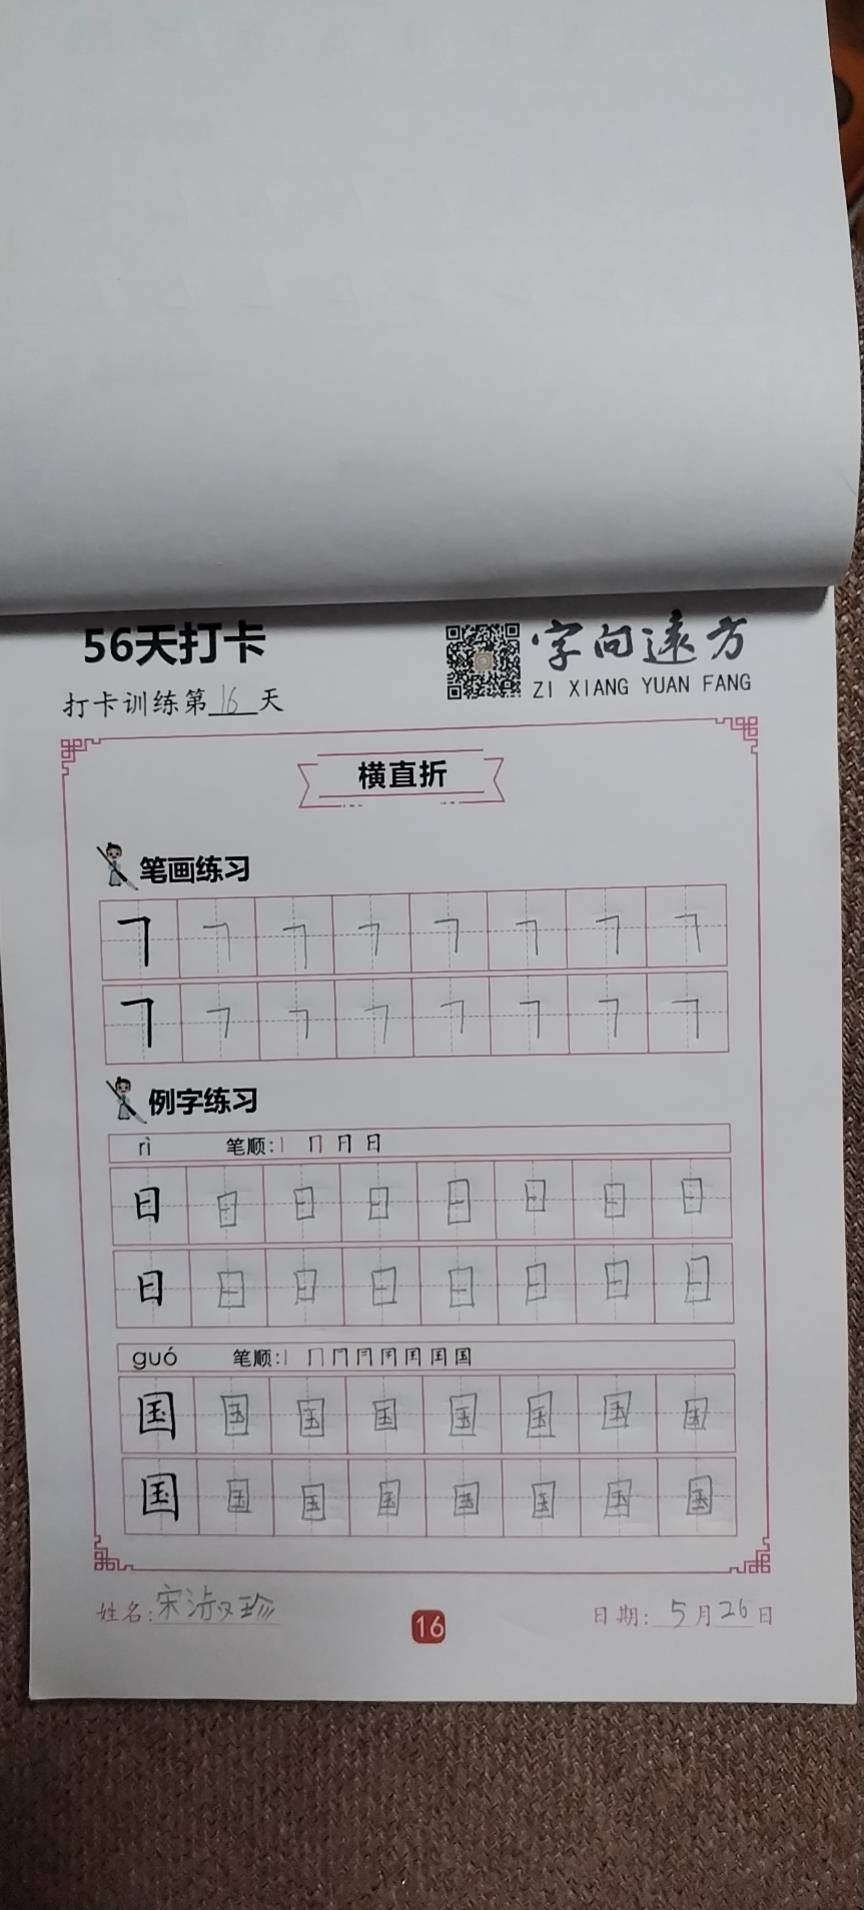 56天打卡
字向远方
ZI XIANG YUAN FANG
打卡训练第16天
横直折
笔画练习
㇕ ㇕ ㇕ ㇕ ㇕ ㇕ ㇕ ㇕
㇕ ㇕ ㇕ ㇕ ㇕ ㇕ ㇕ ㇕
例字练习
rì 笔顺:丨 冂 日 日
日 日 日 日 日 日 日 日
日 日 日 日 日 日 日 日
guó 笔顺:丨 冂 国
国 国 国 国 国 国 国 国
国 国 国 国 国 国 国 国
姓名:宋淑珍
16
日期:5月26日